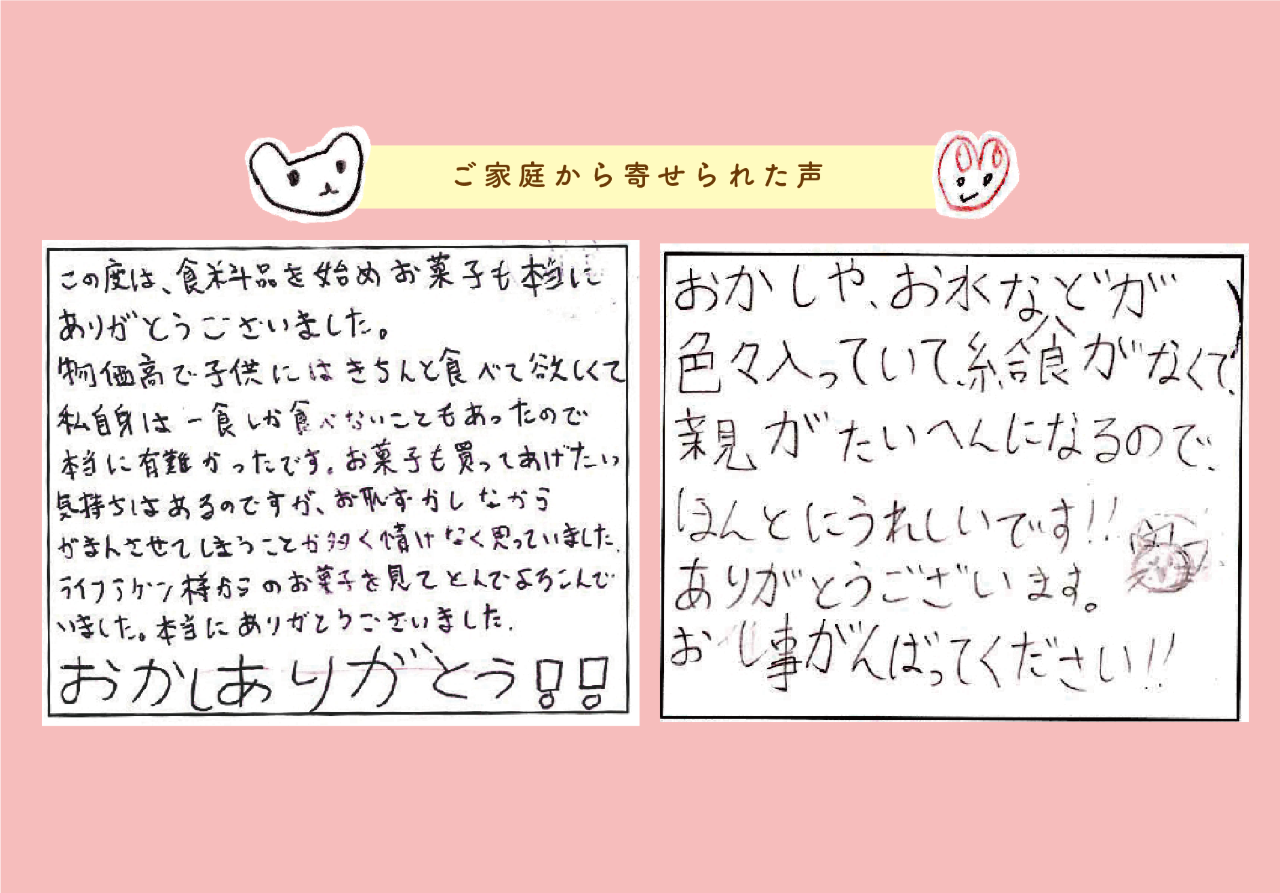 ご家庭から寄せられた声
この度は、食料品を始めお菓子も本当に
ありがとうございました。
物価高で子供にはきちんと食べて欲しくて
私自身は一食しか食べないこともあったので
本当に有難かったです。お菓子も買ってあげたい
気持ちはあるのですが、お恥ずかしながら
がまんさせてしまうことが多く情けなく思っていました。
ライフラケン様からのお菓子を見てとんでよろこんで
いました。本当にありがとうございました。
おかしありがとう!!
おかしや、お水などが
色々入っていて、給食がなくて、
親がたいへんになるので、
ほんとにうれしいです!!
ありがとうございます。
お し事がんばってください!!